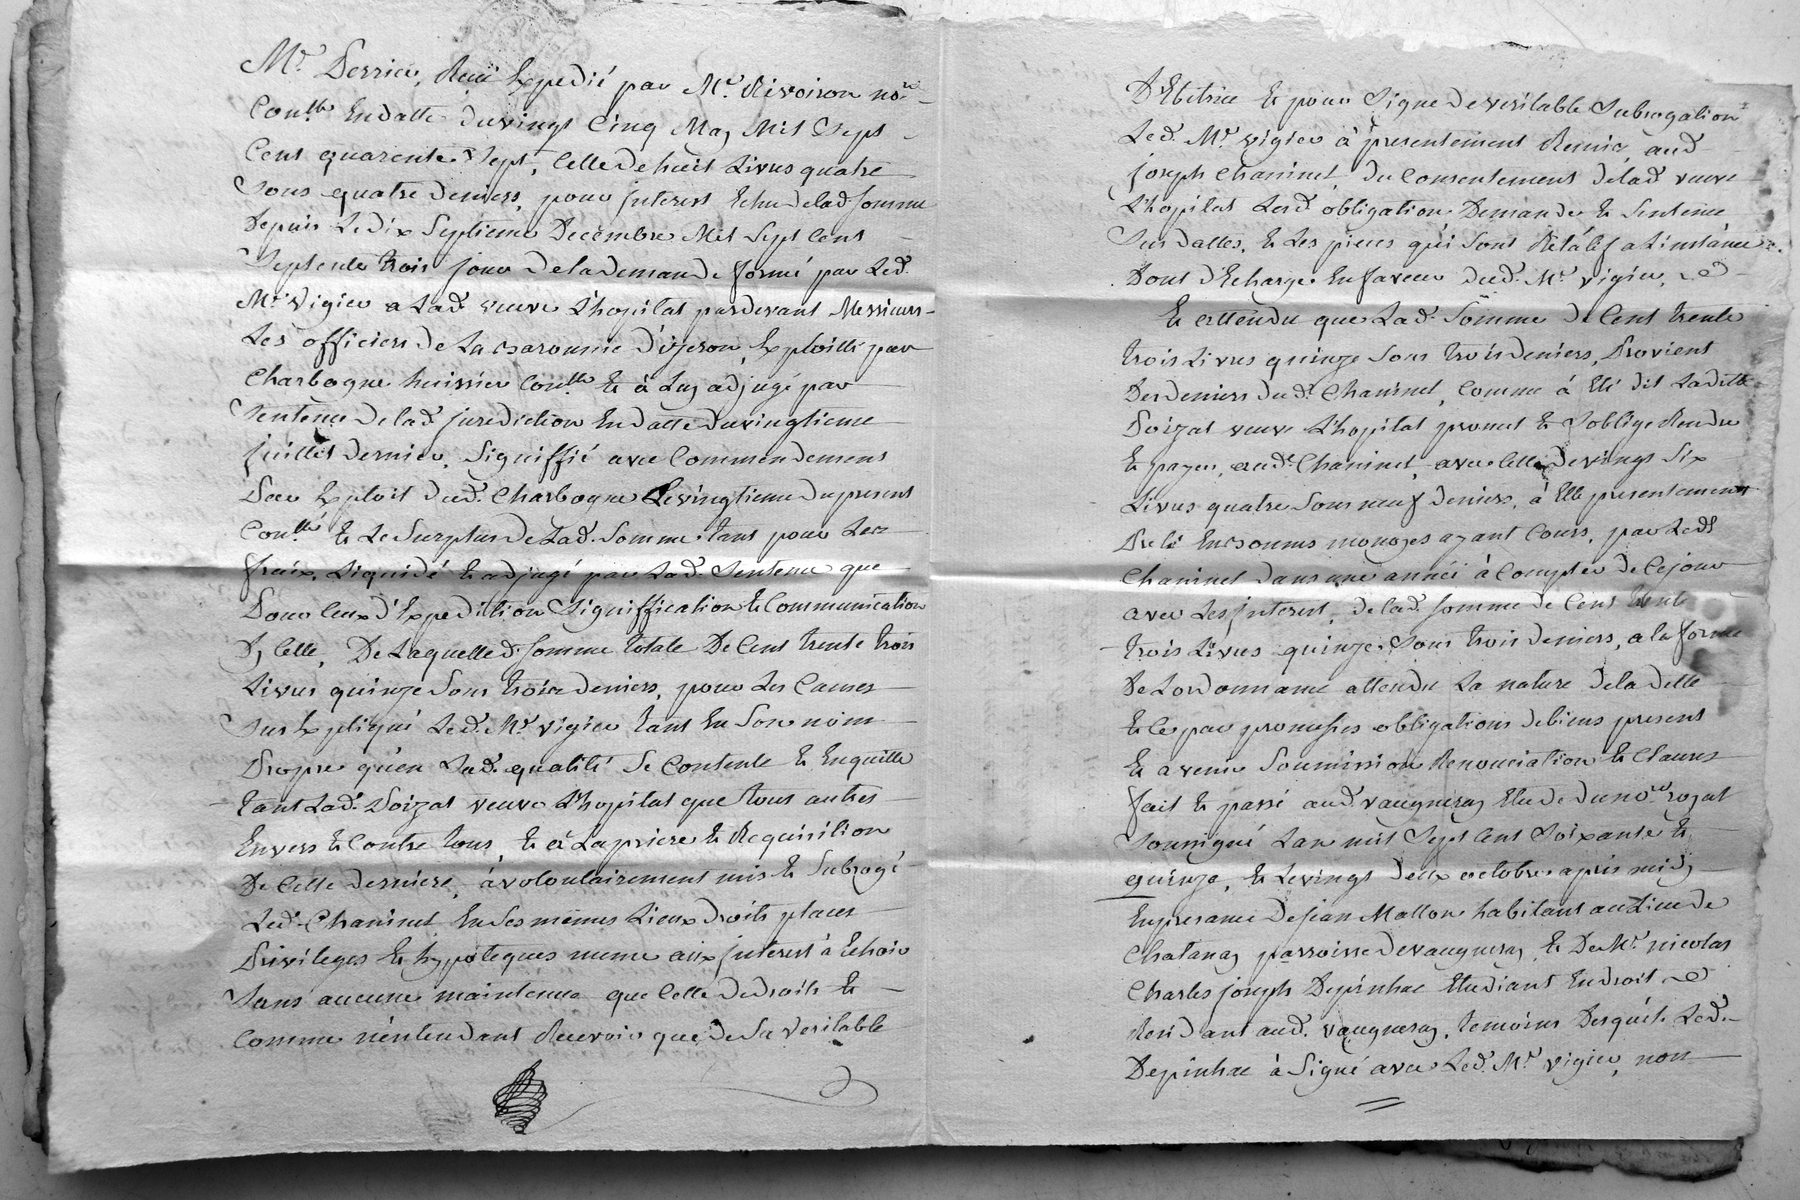 Mr. Perricu, Recu Expedié par Mr. Rivoiron nore
Contll Endatte duvingt Cinq May Mil Sept
Cent quarente Sept, Celle de huit Livres quatre
Sous quatre deniers, pour jnterest Echu delad Somme
Depuis Ledix Septieme Decembre Mil Sept Cent
Septente trois jour de la demande formé par Led.
Mr. Vigier a Lad. veuve L'hopital pardevant Messieurs
Les officiers de La Baronnie d'yzeron, Exploitté par
Charbogne huissier Contll Et à Luy adjugé par
Sentence de lad. jurediction Endatte duvingtieme
juillet dernier, Signiffié avec Commendement
Par Exploit dud. Charbogne Levingtieme dupresent
Et Le Surplus de Lad. Somme tant pour Les
fraix, Liquidé Et adjugé par Lad. Sentence que
Pour Ceux d'Expedition Signiffication Et Communication
D'jCelle, De Laquelle d. Somme totale De Cent trente trois
Livres quinze Sous trois deniers, pour Les Causes
Sus Expliqué Led. Mr. Vigier tant En Son nom
Propre qu'en Sad. qualité Se Contente Et Enquitte
tant Lad. Poizat veuve L'hopital que tous autres
Envers Et Contre tous, Et à La priere Et Requisition
De Cette derniere, à volontairement mis Et Subrogé
Led. Chaninel En Ses mêmes Lieux droits places
Privileges Et hypoteques meme aux jnterest à Echoir
Sans aucune maintenue que Celle de droits Et
Comme n'entendant Recevoir que de Sa veritable
DEbitrice Et pour Signe de veritable Subrogation
Led. Mr. Vigier à presentement Remis aud
joseph Chaninel, du Consentement delad veuve
L'hopital Lesd. obligation Demandes Et Sentence
Sus dattes, Et Les pieces qui Sont Relatif a L'instance
Dont d'Echarge En faveur dud. Mr. Vigier,
Et attendu que Lad. Somme de Cent trente
trois Livres quinze Sous trois deniers, Provient
Des deniers dud. Chaninel, Comme à Eté dit Laditte
Poizat veuve L'hopital promet Et S'oblige Rendre
Et payer, aud. Chaninel, avec Celle de vingt Six
Livres quatre Sous neuf deniers, à Elle presentement
Preté En bonnes monoyes ayant Cours, par Led.
Chaninel dans une année à Compter de Ce jour
avec Les jnterest, de lad. Somme de Cent trente
trois Livres quinze Sous trois deniers, a la forme
De L'ordonnance attendu La nature de la dette
Et Ce par promesses obligations de biens present
Et a venir Soumission Renonciation Et Clauses
fait Et passé aud. vaugneray Etude du nore royal
Soussigné L'an mil Sept Cent Soixante Et
quinze, Et Le vingt deux octobre après midy
En presance de jean Mallon habitant au Lieu de
Chatanay parroisse de vaugneray, Et De Mr. nicolas
Charles joseph Depinhac Etudiant En droit
Residant aud. vaugneray, temoins Desquels Led.
Depinhac à Signé avec Led. Mr. Vigier, non